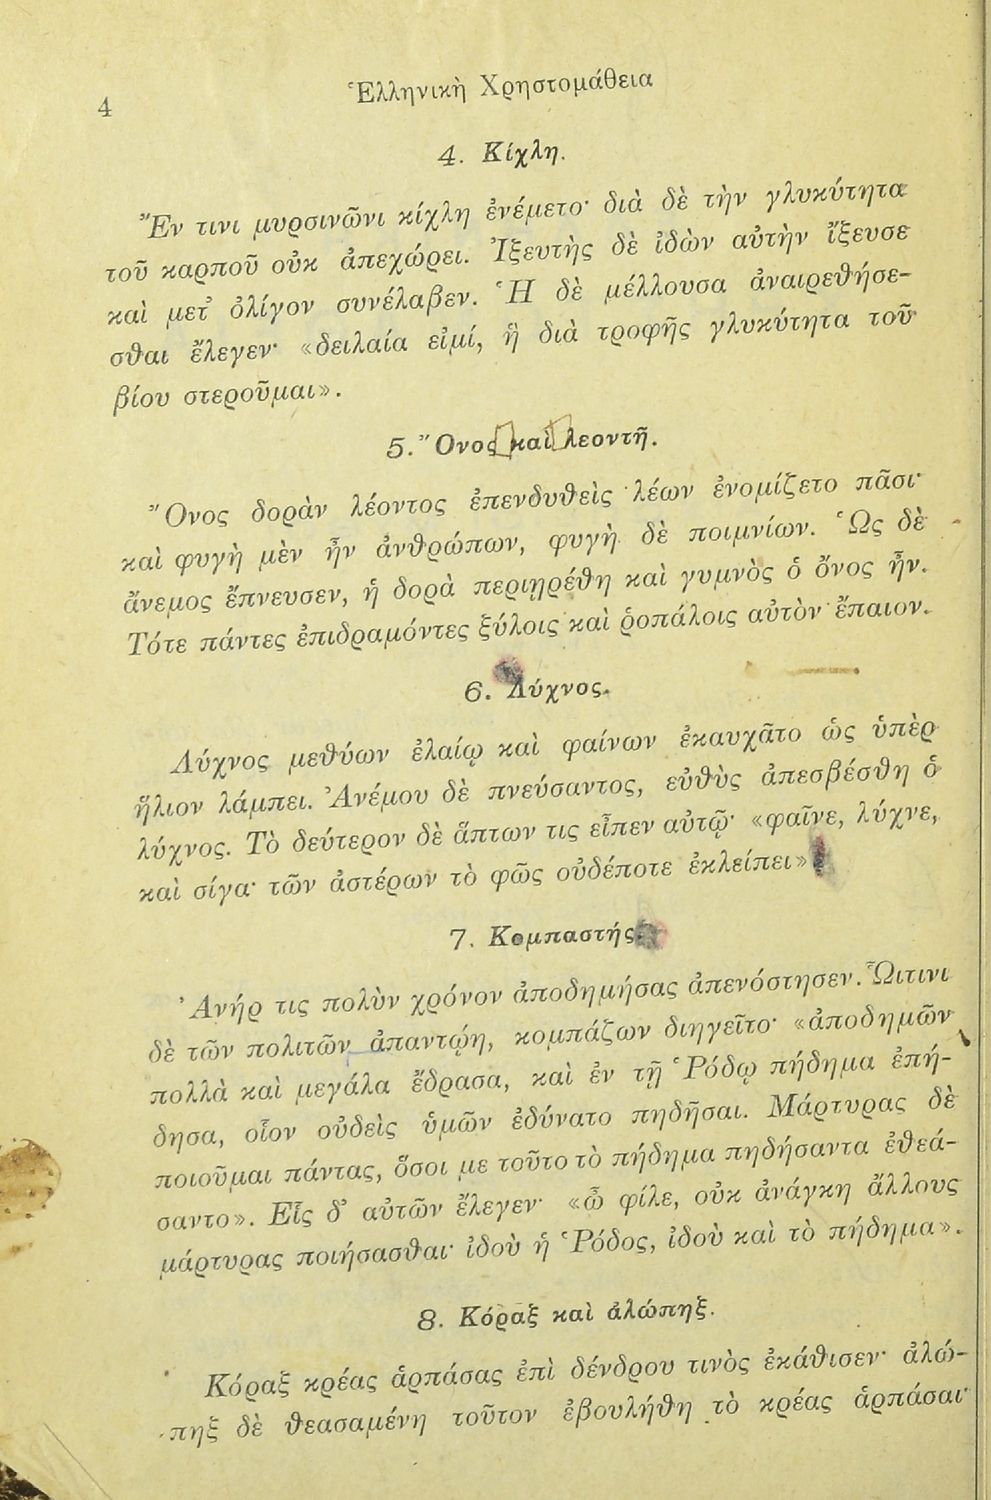 4
Ἑλληνικὴ Χρηστομάθεια
4. Κίχλη.
Ἔν τινι μυρσινῶνι κίχλη ἐνέμετο· διὰ δὲ τὴν γλυκύτητα
τοῦ καρποῦ οὐκ ἀπεχώρει. Ἰξευτὴς δὲ ἰδὼν αὐτὴν ἴξευσε
καὶ μετ' ὀλίγον συνέλαβεν. Ἡ δὲ μέλλουσα ἀναιρεθήσε-
σθαι ἔλεγεν· «δειλαία εἰμί, ἣ διὰ τροφῆς γλυκύτητα τοῦ
βίου στεροῦμαι».
5. Ὄνος καὶ λεοντῆ.
Ὄνος δορὰν λέοντος ἐπενδυθεὶς λέων ἐνομίζετο πᾶσι·
καὶ φυγὴ μὲν ἦν ἀνθρώπων, φυγὴ δὲ ποιμνίων. Ὡς δὲ
ἄνεμος ἔπνευσεν, ἡ δορὰ περιῃρέθη καὶ γυμνὸς ὁ ὄνος ἦν.
Τότε πάντες ἐπιδραμόντες ξύλοις καὶ ῥοπάλοις αὐτὸν ἔπαιον.
6. Λύχνος.
Λύχνος μεθύων ἐλαίῳ καὶ φαίνων ἐκαυχᾶτο ὡς ὑπὲρ
ἥλιον λάμπει. Ἀνέμου δὲ πνεύσαντος, εὐθὺς ἀπεσβέσθη ὁ
λύχνος. Τὸ δεύτερον δὲ ἅπτων τις εἶπεν αὐτῷ· «φαῖνε, λύχνε,
καὶ σίγα· τῶν ἀστέρων τὸ φῶς οὐδέποτε ἐκλείπει»
7. Κομπαστής.
Ἀνήρ τις πολὺν χρόνον ἀποδημήσας ἀπενόστησεν. Ὧιτινι
δὲ τῶν πολιτῶν ἀπαντῴη, κομπάζων διηγεῖτο· «ἀποδημῶν
πολλὰ καὶ μεγάλα ἔδρασα, καὶ ἐν τῇ Ῥόδῳ πήδημα ἐπή-
δησα, οἷον οὐδεὶς ὑμῶν ἐδύνατο πηδῆσαι. Μάρτυρας δὲ
ποιοῦμαι πάντας, ὅσοι με τοῦτο τὸ πήδημα πηδήσαντα ἐθεά-
σαντο». Εἷς δ' αὐτῶν ἔλεγεν· «ὦ φίλε, οὐκ ἀνάγκη ἄλλους
μάρτυρας ποιήσασθαι· ἰδοὺ ἡ Ῥόδος, ἰδοὺ καὶ τὸ πήδημα».
8. Κόραξ καὶ ἀλώπηξ.
Κόραξ κρέας ἁρπάσας ἐπὶ δένδρου τινὸς ἐκάθισεν· ἀλώ-
πηξ δὲ θεασαμένη τοῦτον ἐβουλήθη τὸ κρέας ἁρπάσαι·